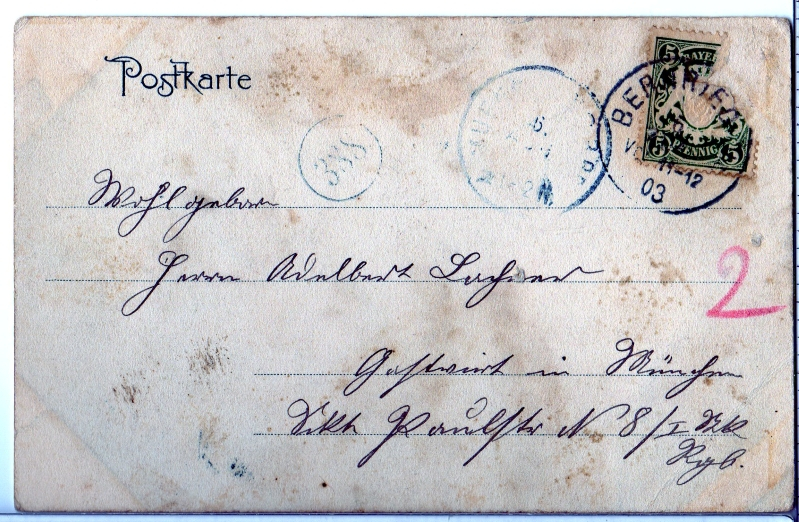 Postkarte
5 BAYERN 5
PFENNIG 5
BERNRIED
11-12
03
388
Wohlgeboren
Herrn Adelbert Lachner
2
Gastwirt in München
Skt Paulstr N 8/I Stk
Rgb.